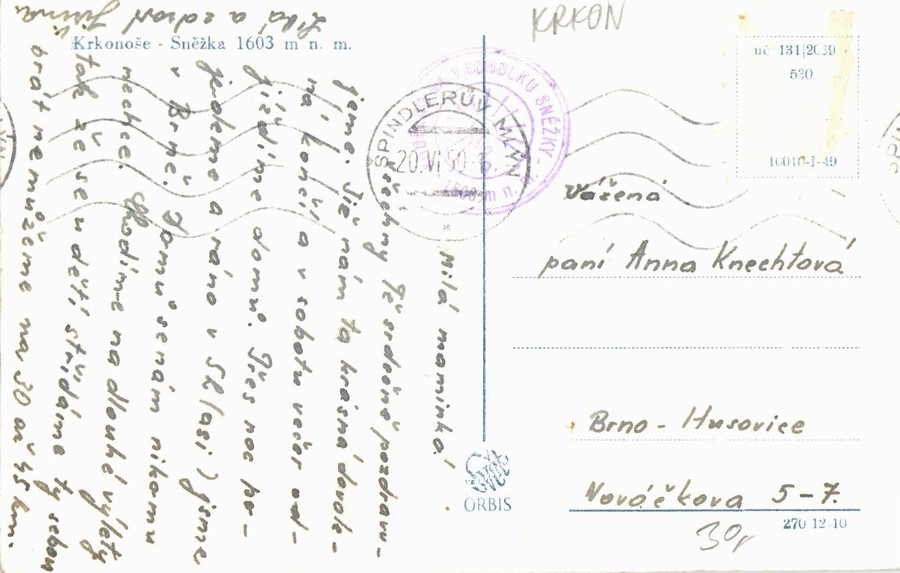 KRKON
Krkonoše - Sněžka 1603 m n. m.
Milá maminko!
Všechny Tě srdečně pozdrav-
jeme. Již nám ta krásná dovole-
ná končí a v sobotu večer od-
jíždíme domů. Přes noc po-
jedeme a ráno v 5h (asi) jsme
v Brně. Domů se nám nikomu
nechce. Chodíme na dlouhé výlety
tak že se u dětí střídáme ty sebou
brát nemůžeme na 30 až 45 km.
Líbá a zdraví Jiřina.
VRCHOLKU SNĚŽKY
1603 m n.
ŠPINDLERŮV MLÝN
20.VI.50
uč 131|2059
520
16010-I-49
Vážená
paní Anna Knechtová
Brno - Husovice
Nováčkova 5-7.
ORBIS
270 12-10
30,